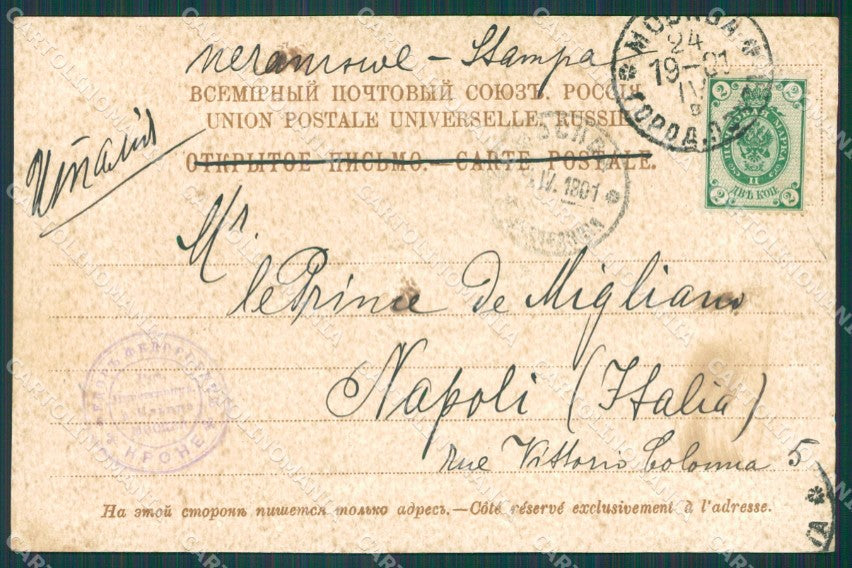 печатное — Stampa
ВСЕМІРНЫЙ ПОЧТОВЫЙ СОЮЗЪ. РОССІЯ
UNION POSTALE UNIVERSELLE. RUSSIE
ОТКРЫТОЕ ПИСЬМО. — CARTE POSTALE.
Италія
МОСКВА
24
19-01
IV
2 2
ДВѢ КОП.
2 2
IV. 1901
Mr.
le Prince de Migliano
Napoli (Italia)
rue Vittorio Colonna 5
КРОНЕ
На этой сторонѣ пишется только адресъ.—Côté réservé exclusivement à l'adresse.
CARTOLINOMANIA